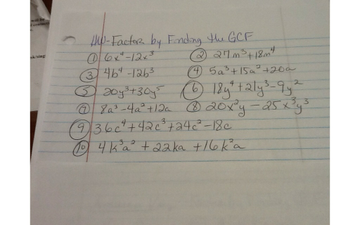 HW-Factoring by Finding the GCF
① 6x⁴-12x³ ② 27m³+18m⁴
③ 4b⁴-12b³ ④ 5a³+15a²+20a
⑤ 20y³+30y⁵ ⑥ 18y⁴+21y³-9y²
⑦ 8a³-4a²+12a ⑧ 20x²y-25x³y³
⑨ 36c⁴+42c³+24c²-18c
⑩ 4k³a²+22ka+16k²a